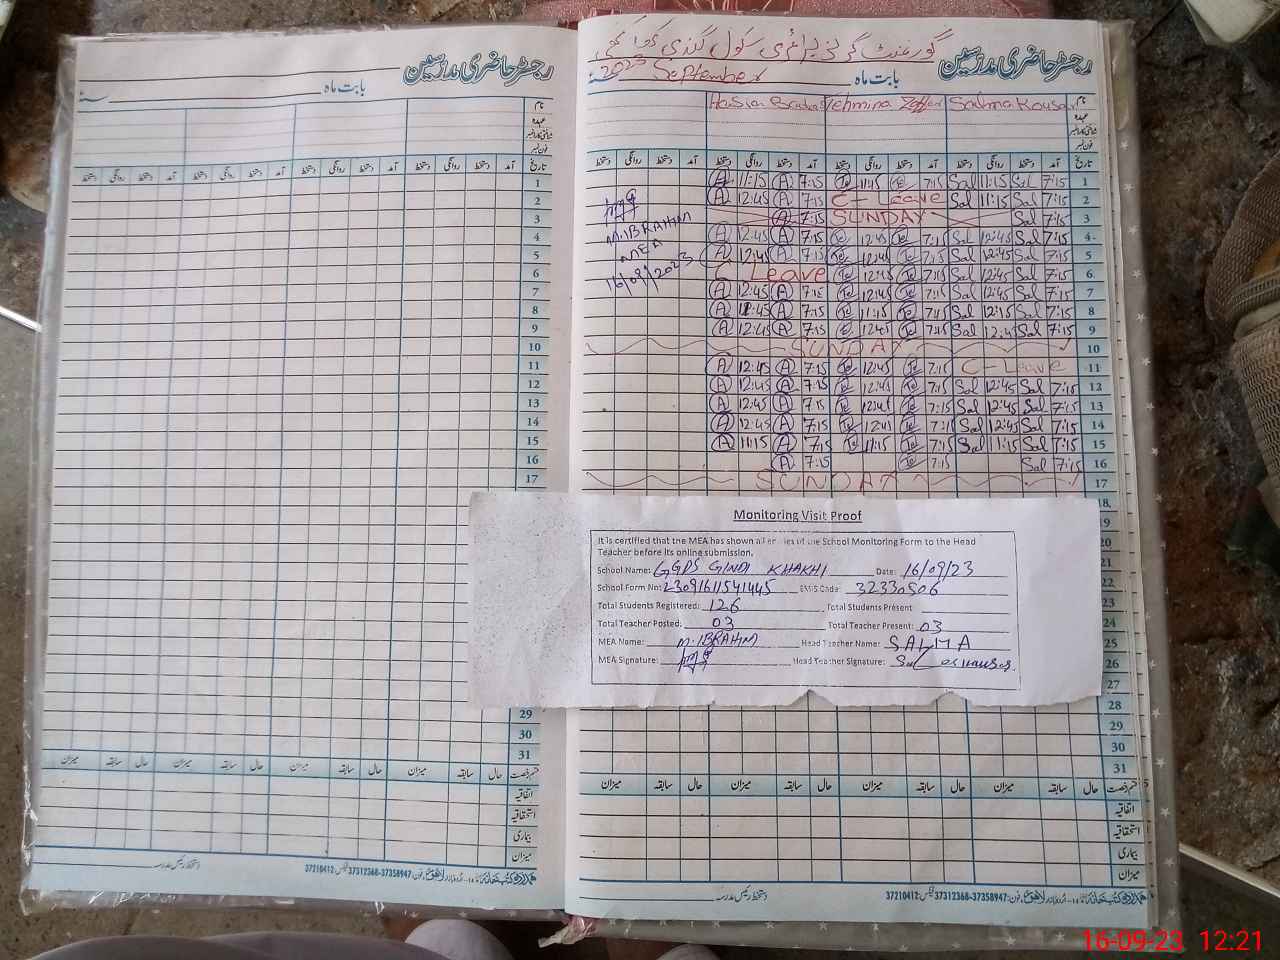 رجسٹر حاضری مدرسین
بابت ماہ
سنہ
نام
عہدہ
فون نمبر
تاریخ آمد دستخط روانگی دستخط آمد دستخط روانگی دستخط آمد دستخط روانگی دستخط آمد دستخط روانگی دستخط
1
2
3
4
5
6
7
8
9
10
11
12
13
14
15
16
17
29
30
31
میزان سابقہ حال میزان سابقہ حال میزان سابقہ حال میزان سابقہ حال
اتفاقیہ
استحقاقیہ
بیماری
میزان
دستخط رئیس مدرسہ
37210412 37312368-37358947
گورنمنٹ گرلز پرائمری سکول
رجسٹر حاضری مدرسین
بابت ماہ September 2023
نام Salma Kousar Tehmina Zaffar
عہدہ
فون نمبر
تاریخ آمد دستخط روانگی دستخط آمد دستخط روانگی دستخط آمد دستخط روانگی دستخط آمد دستخط روانگی دستخط
A 11:15 A 7:15 Te 11:15 Te 7:15 Sal 11:15 Sal 7:15 1
A 12:45 A 7:15 C - Leave Sal 11:15 Sal 7:15 2
A 7:15 SUNDAY Sal 7:15 3
A 12:45 A 7:15 Te 12:45 Te 7:15 Sal 12:45 Sal 7:15 4
A 12:45 A 7:15 Te 12:45 Te 7:15 Sal 12:45 Sal 7:15 5
C Leave Te 12:45 Te 7:15 Sal 12:45 Sal 7:15 6
A 12:45 A 7:15 Te 12:45 Te 7:15 Sal 12:45 Sal 7:15 7
A 12:45 A 7:15 Te 11:15 Te 7:15 Sal 12:15 Sal 7:15 8
A 12:45 A 7:15 Te 12:45 Te 7:15 Sal 12:45 Sal 7:15 9
SUNDAY 10
A 12:45 A 7:15 Te 12:45 Te 7:15 C - Leave 11
A 12:45 A 7:15 Te 12:45 Te 7:15 Sal 12:45 Sal 7:15 12
A 12:45 A 7:15 Te 12:45 Te 7:15 Sal 12:45 Sal 7:15 13
A 12:45 A 7:15 Te 12:45 Te 7:15 Sal 12:45 Sal 7:15 14
A 11:15 A 7:15 Te 11:15 Te 7:15 Sal 11:15 Sal 7:15 15
A 7:15 Te 7:15 Sal 7:15 16
SUNDAY 17
M.IBRAHIM
MEA
16/09/2023
18
19
20
21
22
23
24
25
26
27
28
29
30
31
Monitoring Visit Proof
It is certified that the MEA has shown all entries of the School Monitoring Form to the Head
Teacher before its online submission.
School Name: GGPS GINDI KHAKHI Date: 16/09/23
School Form No: 23091611541445 EMIS Code: 32330506
Total Students Registered: 126 Total Students Present
Total Teacher Posted: 03 Total Teacher Present: 03
MEA Name: M.IBRAHIM Head Teacher Name: SALMA
MEA Signature: Head Teacher Signature:
میزان سابقہ حال میزان سابقہ حال میزان سابقہ حال میزان سابقہ حال
اتفاقیہ
استحقاقیہ
بیماری
میزان
دستخط رئیس مدرسہ
37210412 37312368-37358947
16-09-23 12:21